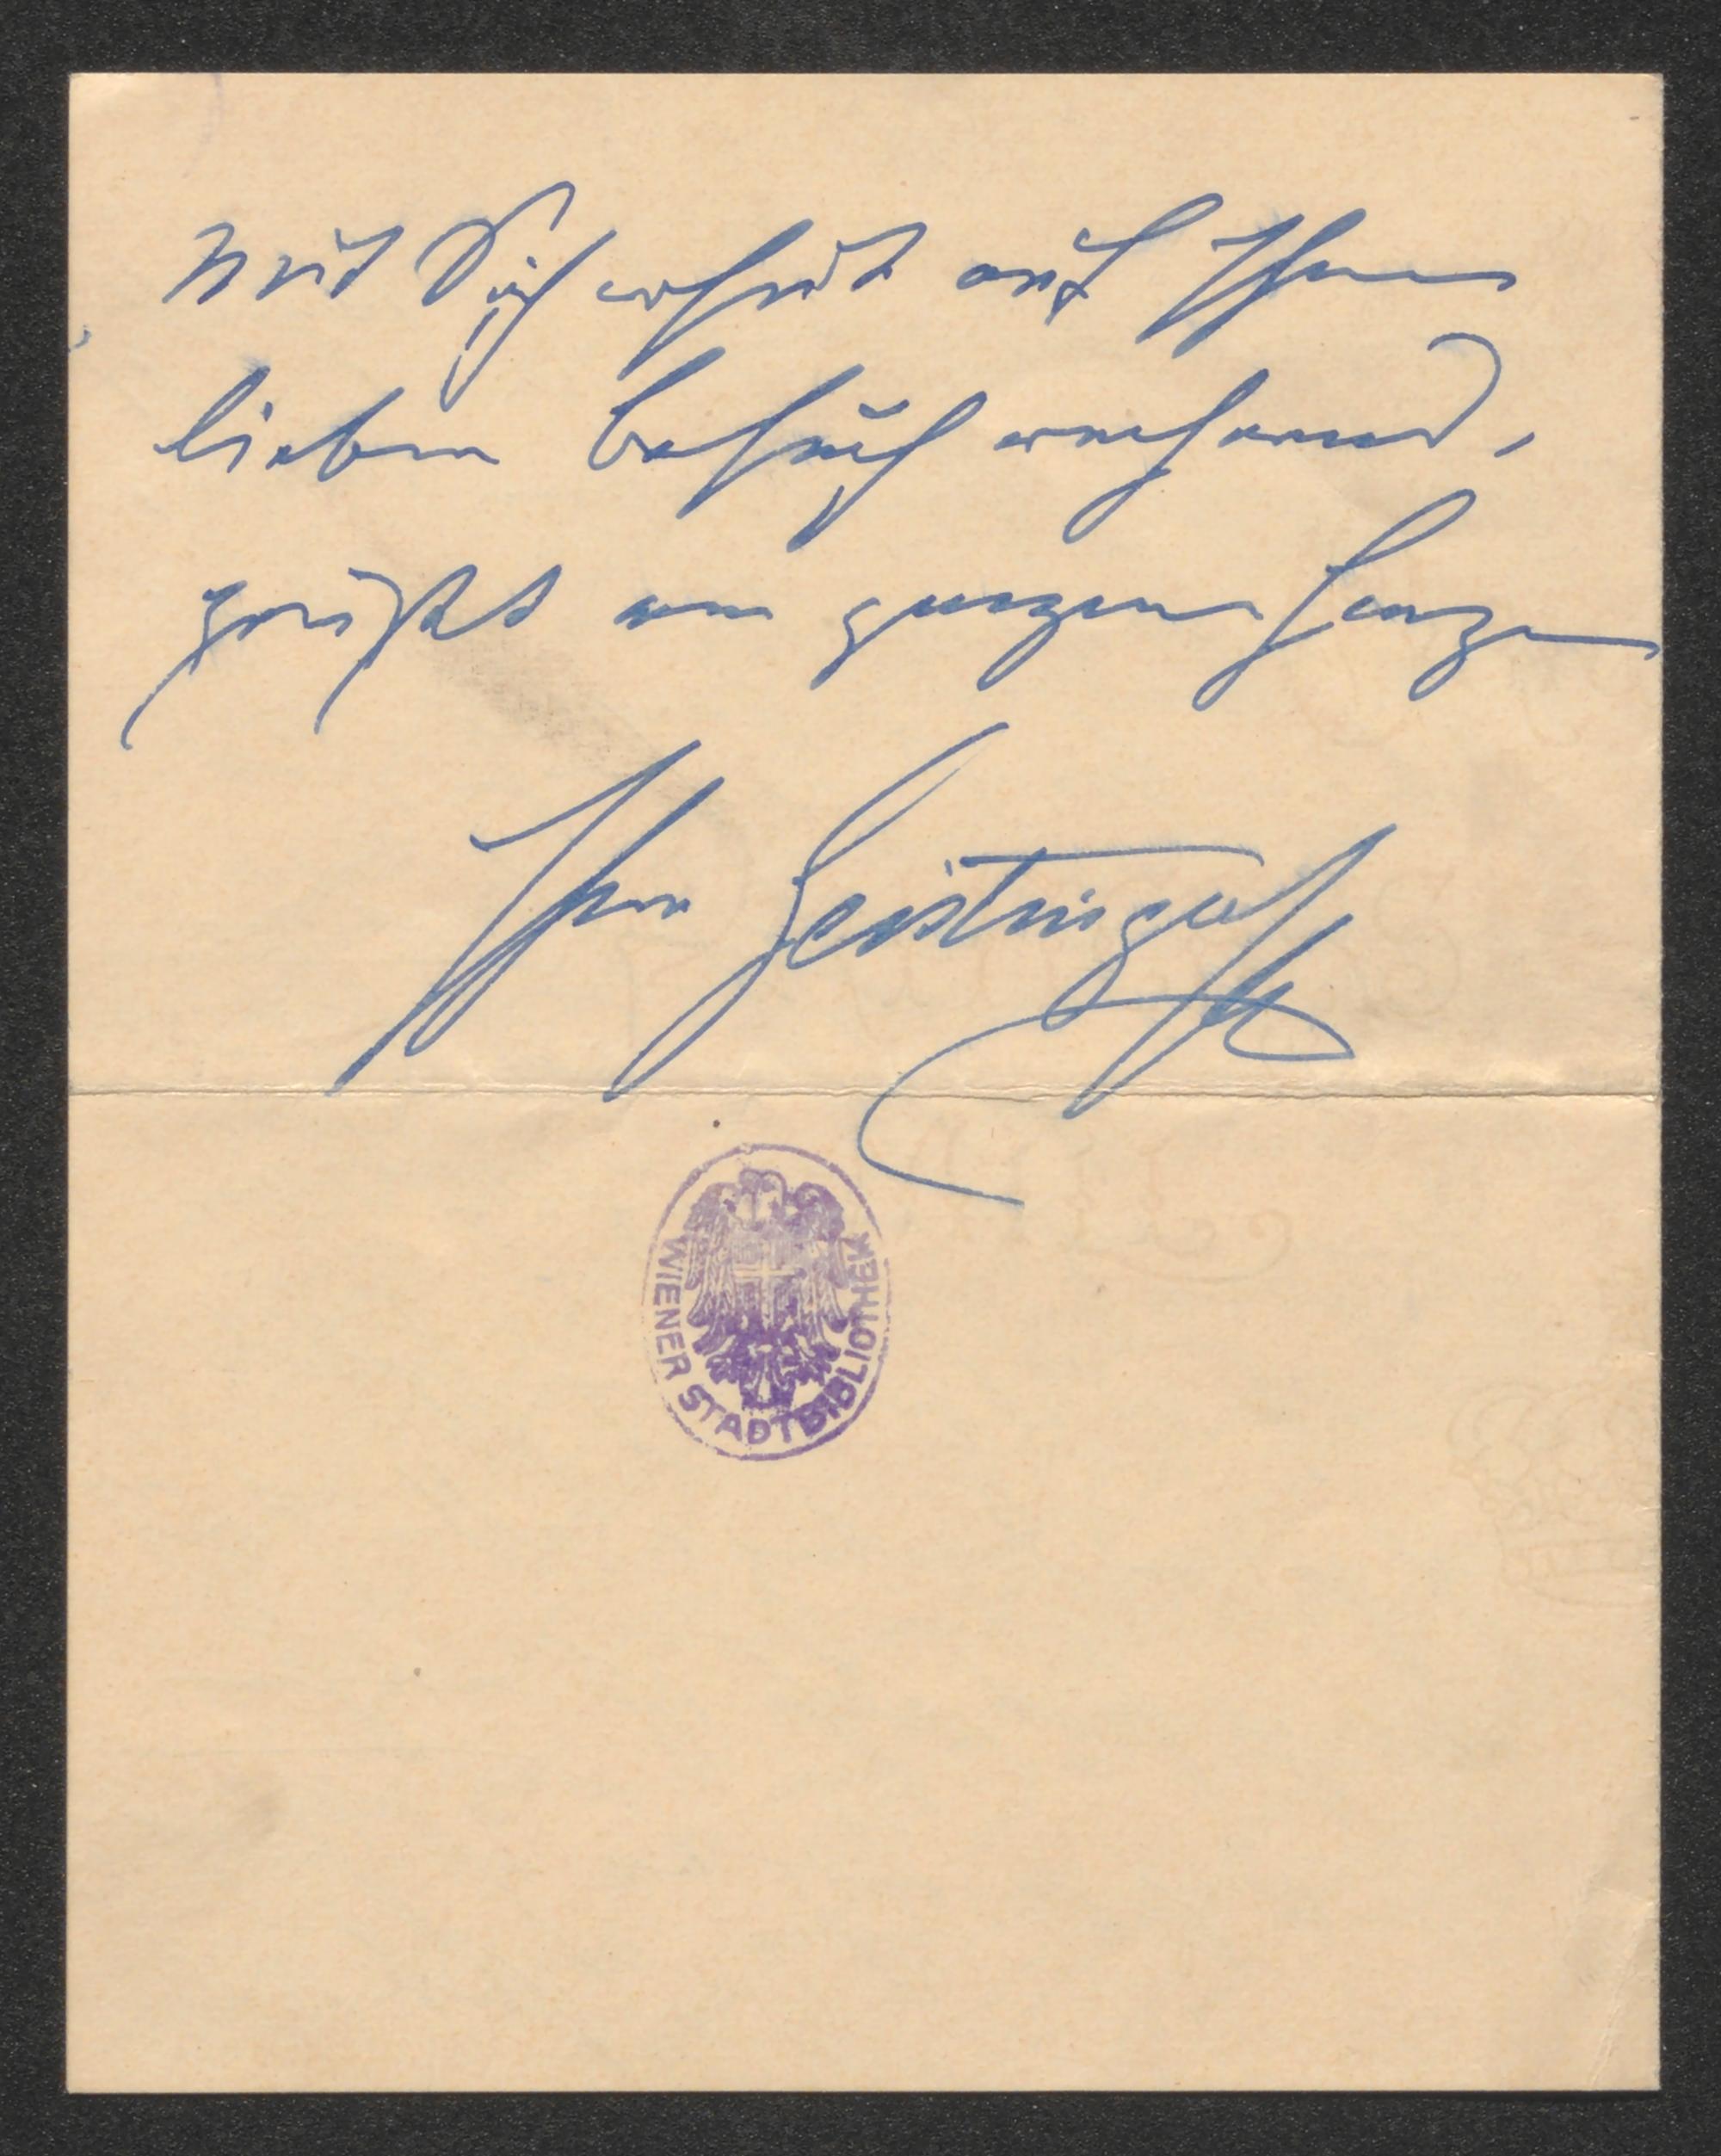 Mit Sicherheit auf Ihren
lieben Besuch rechnend,
grüßt von ganzem Herzen
Ihre Geistinger
WIENER STADTBIBLIOTHEK